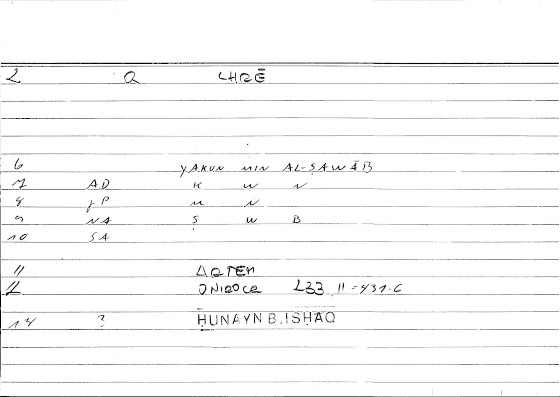 2 Q CHRĒ
6 YAKUN MIN AL-ṢAWĀB
7 AD K W N
8 JP M N
9 NA Ṣ W B
10 SA
11 ARTEM
12 ONIROCR 233,11 = 431.6
14 ? ḤUNAYN B. ISḤĀQ